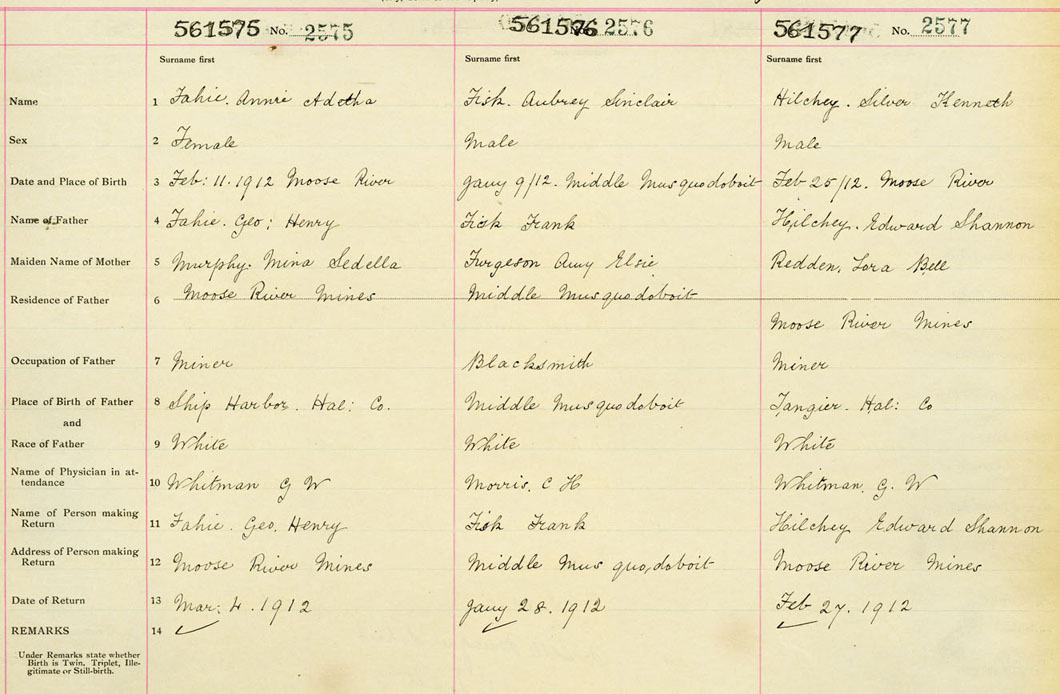 561575 No. 2575 561576 2576 561577 No. 2577
Surname first Surname first Surname first
Name 1 Fahie. Annie Adetha Fisk. Aubrey Sinclair Hilchey. Silver Kenneth
Sex 2 Female Male Male
Date and Place of Birth 3 Feb: 11. 1912 Moose River Jany 9/12. Middle Musquodoboit Feb 25/12. Moose River
Name of Father 4 Fahie. Geo: Henry Fisk Frank Hilchey. Edward Shannon
Maiden Name of Mother 5 Murphy. Mina Sedella Furgeson Amy Elsie Redden, Lora Bell
Residence of Father 6 Moose River Mines Middle Musquodoboit
Moose River Mines
Occupation of Father 7 Miner Blacksmith Miner
Place of Birth of Father 8 Ship Harbor. Hal: Co. Middle Musquodoboit Tangier. Hal: Co
and
Race of Father 9 White White White
Name of Physician in at-
tendance 10 Whitman G W Morris, C H Whitman, G. W
Name of Person making
Return 11 Fahie. Geo. Henry Fisk Frank Hilchey Edward Shannon
Address of Person making
Return 12 Moose River Mines Middle Musquodoboit Moose River Mines
Date of Return 13 Mar: 4. 1912 Jany 28. 1912 Feb 27. 1912
REMARKS 14
Under Remarks state whether
Birth is Twin. Triplet, Ille-
gitimate or Still-birth.